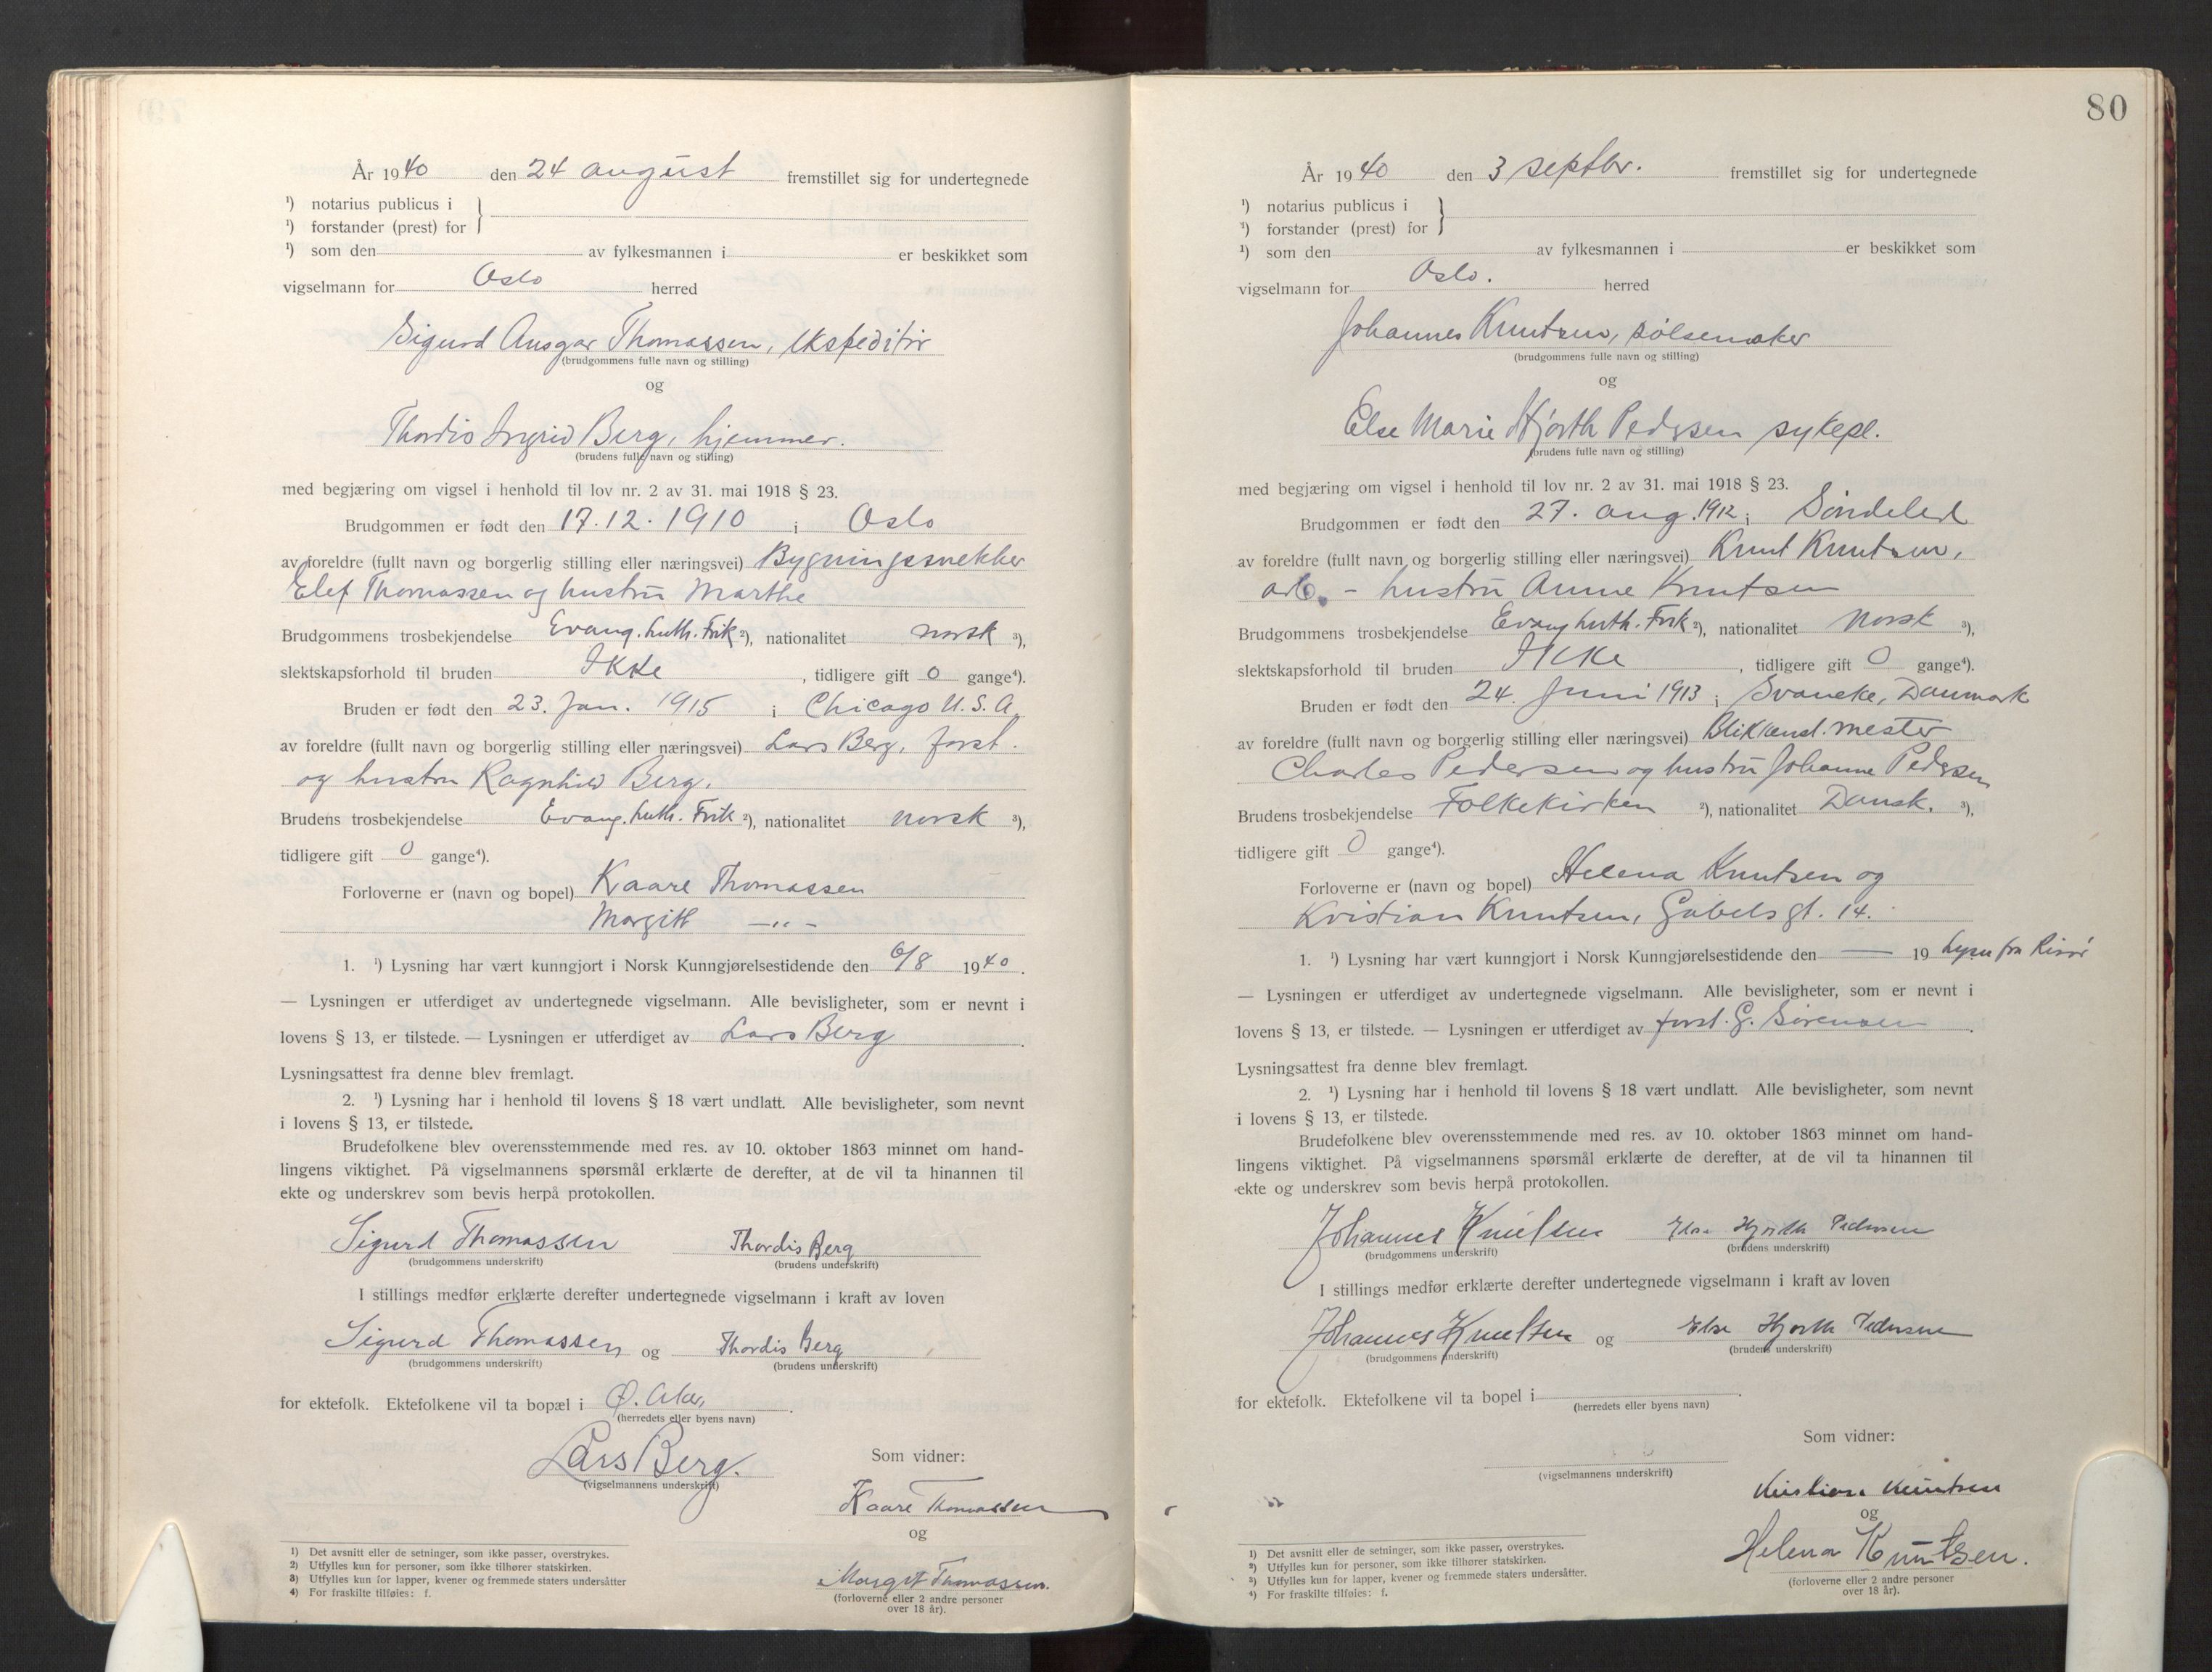 År 1940 den 24 august fremstillet sig for undertegnede
¹) notarius publicus i
¹) forstander (prest) for }
¹) som den av fylkesmannen i er beskikket som
vigselmann for Oslo herred
Sigurd Ansgar Thomassen, ekspeditør
(brudgommens fulle navn og stilling)
og
Thordis Ingrid Berg, hjemmev.
(brudens fulle navn og stilling)
med begjæring om vigsel i henhold til lov nr. 2 av 31. mai 1918 § 23.
Brudgommen er født den 17.12.1910 i Oslo
av foreldre (fullt navn og borgerlig stilling eller næringsvei) Bygningssnekker
Elef Thomassen og hustru Marthe
Brudgommens trosbekjendelse Evang. luth. Frik ²), nationalitet norsk ³),
slektskapsforhold til bruden Ikke, tidligere gift 0 gange⁴).
Bruden er født den 23. Jan. 1915 i Chicago U.S.A.
av foreldre (fullt navn og borgerlig stilling eller næringsvei) Lars Berg, forst.
og hustru Ragnhild Berg.
Brudens trosbekjendelse Evang. luth. Frik ²), nationalitet norsk ³),
tidligere gift 0 gange⁴).
Forloverne er (navn og bopel) Kaare Thomassen
Margitt —"—
1. ¹) Lysning har vært kunngjort i Norsk Kunngjørelsestidende den 6/8 1940.
— Lysningen er utferdiget av undertegnede vigselmann. Alle bevisligheter, som er nevnt i
lovens § 13, er tilstede. — Lysningen er utferdiget av Lars Berg.
Lysningsattest fra denne blev fremlagt.
2. ¹) Lysning har i henhold til lovens § 18 vært undlatt. Alle bevisligheter, som nevnt
i lovens § 13, er tilstede.
Brudefolkene blev overensstemmende med res. av 10. oktober 1863 minnet om hand-
lingens viktighet. På vigselmannens spørsmål erklærte de derefter, at de vil ta hinannen til
ekte og underskrev som bevis herpå protokollen.
Sigurd Thomassen Thordis Berg
(brudgommens underskrift) (brudens underskrift)
I stillings medfør erklærte derefter undertegnede vigselmann i kraft av loven
Sigurd Thomassen og Thordis Berg
(brudgommens underskrift) (brudens underskrift)
for ektefolk. Ektefolkene vil ta bopæl i Ø. Aker.
(herredets eller byens navn)
Lars Berg.
(vigselmannens underskrift)
Som vidner:
Kaare Thomassen
og
Margit Thomassen.
(forloverne eller 2 andre personer
over 18 år).
1) Det avsnitt eller de setninger, som ikke passer, overstrykes.
2) Utfylles kun for personer, som ikke tilhører statskirken.
3) Utfylles kun for lapper, kvener og fremmede staters undersåtter
4) For fraskilte tilføies: f.
80
År 1940 den 3 septbr. fremstillet sig for undertegnede
¹) notarius publicus i
¹) forstander (prest) for }
¹) som den av fylkesmannen i er beskikket som
vigselmann for Oslo. herred
Johannes Knutsen, pølsemaker
(brudgommens fulle navn og stilling)
og
Else Marie Hjorth Pedersen sykepl.
(brudens fulle navn og stilling)
med begjæring om vigsel i henhold til lov nr. 2 av 31. mai 1918 § 23.
Brudgommen er født den 27. aug. 1912 i Søndeled
av foreldre (fullt navn og borgerlig stilling eller næringsvei) Knut Knutsen,
arb. - hustru Anne Knutsen
Brudgommens trosbekjendelse Evang luth. Frik ²), nationalitet Norsk ³),
slektskapsforhold til bruden Ikke, tidligere gift 0 gange⁴).
Bruden er født den 24. Juni 1913 i Svaneke, Danmark
av foreldre (fullt navn og borgerlig stilling eller næringsvei) Blikkensl. mester
Charles Pedersen og hustru Johanne Pedersen
Brudens trosbekjendelse Folkekirken ²), nationalitet Dansk. ³),
tidligere gift 0 gange⁴).
Forloverne er (navn og bopel) Helena Knutsen og
Kristian Knutsen, Gabels gt. 14.
1. ¹) Lysning har vært kunngjort i Norsk Kunngjørelsestidende den — 19 Lysn fra Risør
— Lysningen er utferdiget av undertegnede vigselmann. Alle bevisligheter, som er nevnt i
lovens § 13, er tilstede. — Lysningen er utferdiget av forst. G. Sørensen.
Lysningsattest fra denne blev fremlagt.
2. ¹) Lysning har i henhold til lovens § 18 vært undlatt. Alle bevisligheter, som nevnt
i lovens § 13, er tilstede.
Brudefolkene blev overensstemmende med res. av 10. oktober 1863 minnet om hand-
lingens viktighet. På vigselmannens spørsmål erklærte de derefter, at de vil ta hinannen til
ekte og underskrev som bevis herpå protokollen.
Johannes Knutsen Else Hjorth Pedersen
(brudgommens underskrift) (brudens underskrift)
I stillings medfør erklærte derefter undertegnede vigselmann i kraft av loven
Johannes Knutsen og Else Hjorth Pedersen
(brudgommens underskrift) (brudens underskrift)
for ektefolk. Ektefolkene vil ta bopel i .
(herredets eller byens navn)
Som vidner:
(vigselmannens underskrift)
Kristian Knutsen
og
Helena Knutsen.
(forloverne eller 2 andre personer
over 18 år).
1) Det avsnitt eller de setninger, som ikke passer, overstrykes.
2) Utfylles kun for personer, som ikke tilhører statskirken.
3) Utfylles kun for lapper, kvener og fremmede staters undersåtter.
4) For fraskilte tilføies: f.